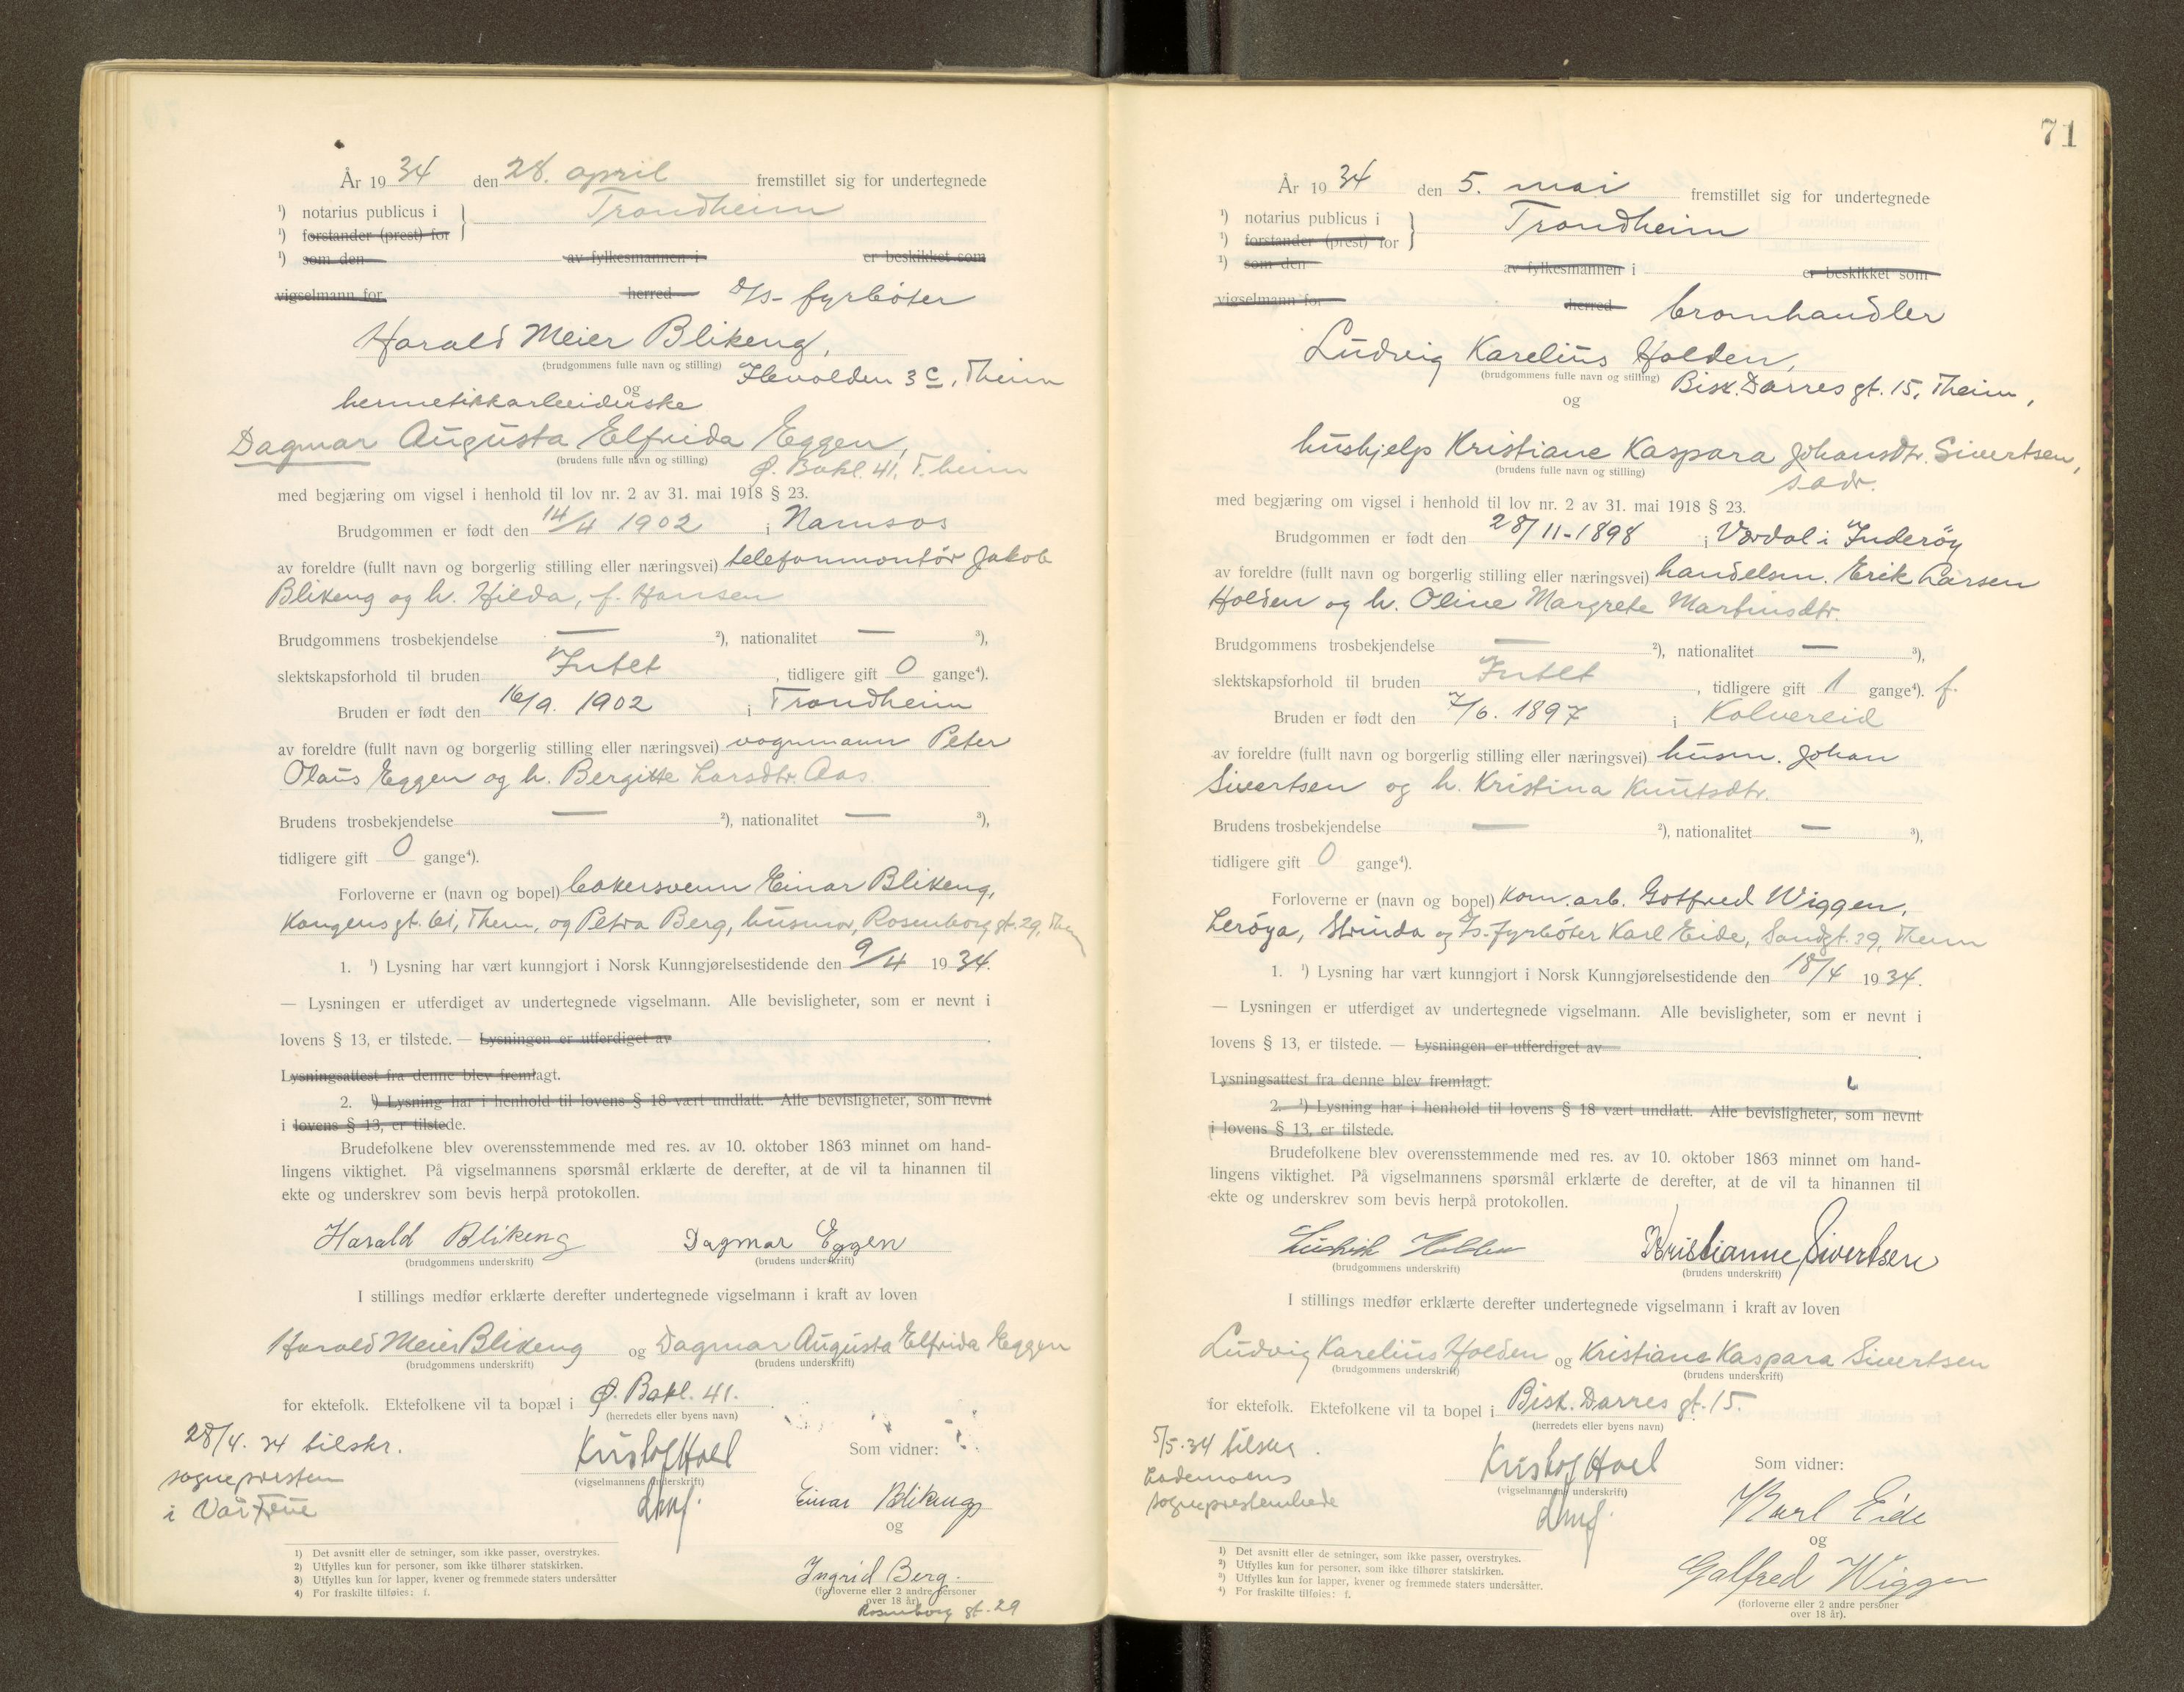 År 19 34 den 28. april fremstillet sig for undertegnede
¹) notarius publicus i } Trondheim
¹) forstander (prest) for
¹) som den av fylkesmannen i er beskikket som
vigselmann for herred D/S- fyrbøter
Harald Meier Blikeng,
(brudgommens fulle navn og stilling) Ilevolden 3 c, Theim
og
hermetikkarbeiderske
Dagmar Augusta Elfrida Eggen,
(brudens fulle navn og stilling) Ø. Bakl. 41, T.heim
med begjæring om vigsel i henhold til lov nr. 2 av 31. mai 1918 § 23.
Brudgommen er født den 14/4 1902 i Namsos
av foreldre (fullt navn og borgerlig stilling eller næringsvei) telefonmontör Jakob
Blikeng og h. Hilda, f. Hansen
Brudgommens trosbekjendelse — ²), nationalitet — ³),
slektskapsforhold til bruden Intet, tidligere gift 0 gange⁴).
Bruden er født den 16/9. 1902 i Trondheim
av foreldre (fullt navn og borgerlig stilling eller næringsvei) vognmann Peter
Olaus Eggen og h. Bergitte Larsdtr. Aas
Brudens trosbekjendelse — ²), nationalitet — ³),
tidligere gift 0 gange⁴).
Forloverne er (navn og bopel) bakersvenn Einar Blikeng,
Kongens gt. 61, Them, og Petra Berg, husmor, Rosenborg gt. 29, Them
1. ¹) Lysning har vært kunngjort i Norsk Kunngjørelsestidende den 9/4 1934.
— Lysningen er utferdiget av undertegnede vigselmann. Alle bevisligheter, som er nevnt i
lovens § 13, er tilstede. — Lysningen er utferdiget av .
Lysningsattest fra denne blev fremlagt.
2. ¹) Lysning har i henhold til lovens § 18 vært undlatt. Alle bevisligheter, som nevnt
i lovens § 13, er tilstede.
Brudefolkene blev overensstemmende med res. av 10. oktober 1863 minnet om hand-
lingens viktighet. På vigselmannens spørsmål erklærte de derefter, at de vil ta hinannen til
ekte og underskrev som bevis herpå protokollen.
Harald Blikeng Dagmar Eggen
(brudgommens underskrift) (brudens underskrift)
I stillings medfør erklærte derefter undertegnede vigselmann i kraft av loven
Harald Meier Blikeng og Dagmar Augusta Elfrida Eggen
(brudgommens underskrift) (brudens underskrift)
for ektefolk. Ektefolkene vil ta bopæl i Ø. Bakl. 41.
(herredets eller byens navn)
28/4. 34 tilskr.
sognepresten
i Vår Frue
Kristof Hoel
(vigselmannens underskrift)
Som vidner:
Einar Blikeng
og
Ingrid Berg.
(forloverne eller 2 andre personer
over 18 år).
Rosenborg gt. 29
1) Det avsnitt eller de setninger, som ikke passer, overstrykes.
2) Utfylles kun for personer, som ikke tilhører statskirken.
3) Utfylles kun for lapper, kvener og fremmede staters undersåtter
4) For fraskilte tilføies: f.
71
År 19 34 den 5. mai fremstillet sig for undertegnede
¹) notarius publicus i } Trondheim
¹) forstander (prest) for
¹) som den av fylkesmannen i er beskikket som
vigselmann for herred bromhandler
Ludvig Karelius Holden,
(brudgommens fulle navn og stilling) Bisk. Darres gt. 15, Theim,
og
hushjelp Kristiane Kaspara Johansdtr. Sivertsen,
(brudens fulle navn og stilling) s. adr.
med begjæring om vigsel i henhold til lov nr. 2 av 31. mai 1918 § 23.
Brudgommen er født den 28/11-1898 i Værdal i Inderöy
av foreldre (fullt navn og borgerlig stilling eller næringsvei) handelsm. Erik Larsen
Holden og h. Oline Margrete Martinsdtr.
Brudgommens trosbekjendelse — ²), nationalitet — ³),
slektskapsforhold til bruden Intet, tidligere gift 1 gange⁴). f.
Bruden er født den 7/6. 1897 i Kolvereid
av foreldre (fullt navn og borgerlig stilling eller næringsvei) husm. Johan
Sivertsen og h. Kristina Knutsdtr.
Brudens trosbekjendelse — ²), nationalitet — ³),
tidligere gift 0 gange⁴).
Forloverne er (navn og bopel) kom. arb. Gotfred Wiggen,
Leröya, Strinda og D/s. fyrbøter Karl Eide, Sandgt. 39, Them
1. ¹) Lysning har vært kunngjort i Norsk Kunngjørelsestidende den 18/4 1934.
— Lysningen er utferdiget av undertegnede vigselmann. Alle bevisligheter, som er nevnt i
lovens § 13, er tilstede. — Lysningen er utferdiget av .
Lysningsattest fra denne blev fremlagt.
2. ¹) Lysning har i henhold til lovens § 18 vært undlatt. Alle bevisligheter, som nevnt
i lovens § 13, er tilstede.
Brudefolkene blev overensstemmende med res. av 10. oktober 1863 minnet om hand-
lingens viktighet. På vigselmannens spørsmål erklærte de derefter, at de vil ta hinannen til
ekte og underskrev som bevis herpå protokollen.
Ludvik Holden Kristianne Sivertsen
(brudgommens underskrift) (brudens underskrift)
I stillings medfør erklærte derefter undertegnede vigselmann i kraft av loven
Ludvig Karelius Holden og Kristiane Kaspara Sivertsen
(brudgommens underskrift) (brudens underskrift)
for ektefolk. Ektefolkene vil ta bopel i Bisk. Darres gt. 15.
(herredets eller byens navn)
5/5-34 tilskr.
Lademoens
sogneprestembede
Kristof Hoel
(vigselmannens underskrift)
Som vidner:
Karl Eide
og
Galfred Wiggen
(forloverne eller 2 andre personer
over 18 år).
1) Det avsnitt eller de setninger, som ikke passer, overstrykes.
2) Utfylles kun for personer, som ikke tilhører statskirken.
3) Utfylles kun for lapper, kvener og fremmede staters undersåtter.
4) For fraskilte tilføies: f.